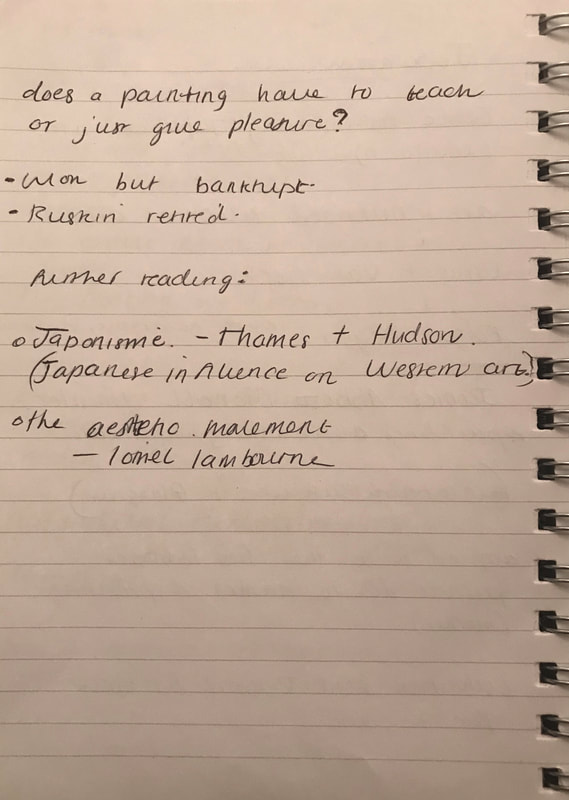 does a painting have to teach
or just give pleasure?
- Won but bankrupt.
- Ruskin retired.
further reading:
o Japonisme. - Thames + Hudson.
(Japanese influence on Western art)
o the aesthetic movement
- lionel lambourne